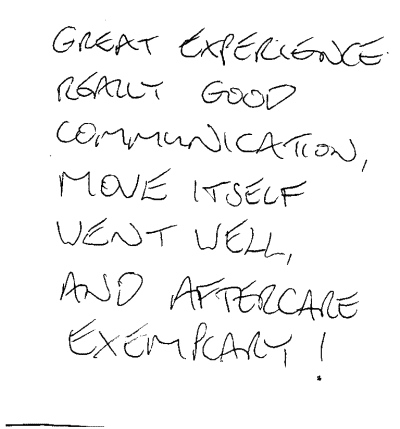 GREAT EXPERIENCE.
REALLY GOOD
COMMUNICATION,
MOVE ITSELF
WENT WELL,
AND AFTERCARE
EXEMPLARY!